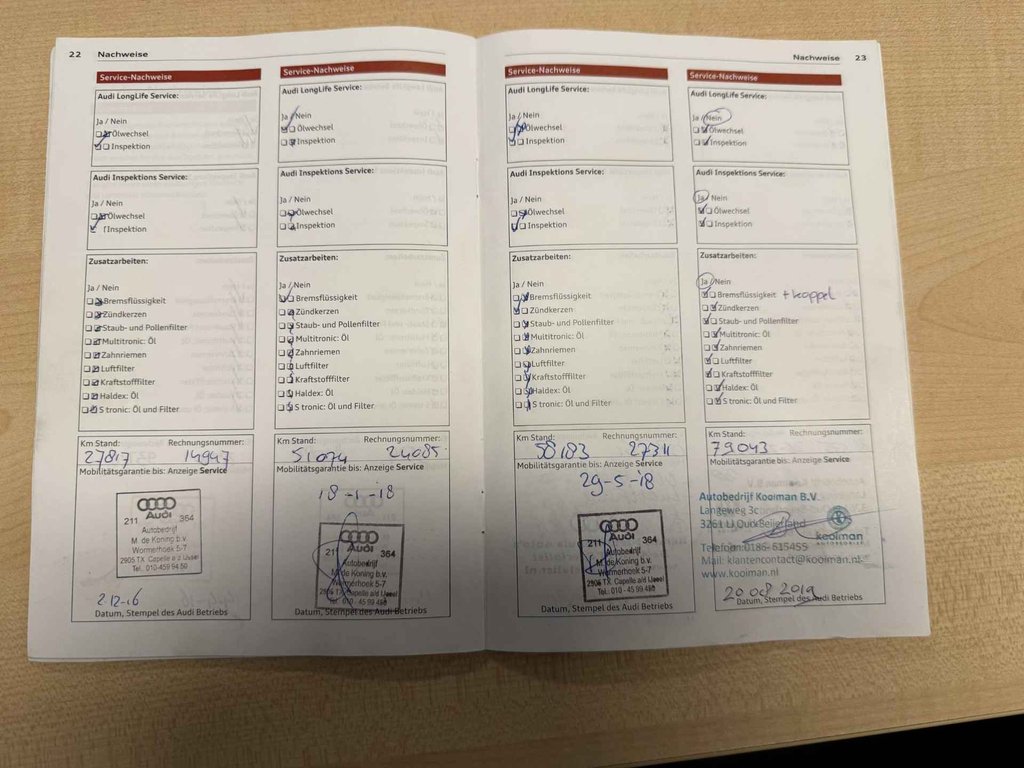 22 Nachweise
Service-Nachweise
Audi LongLife Service:
Ja / Nein
Ölwechsel
Inspektion
Audi Inspektions Service:
Ja / Nein
Ölwechsel
Inspektion
Zusatzarbeiten:
Ja / Nein
Bremsflüssigkeit
Zündkerzen
Staub- und Pollenfilter
Multitronic: Öl
Zahnriemen
Luftfilter
Kraftstofffilter
Haldex: Öl
S tronic: Öl und Filter
Km Stand: Rechnungsnummer:
27817 14947
Mobilitätsgarantie bis: Anzeige Service
Audi
211 364
Autobedrijf
M. de Koning b.v.
Wormerhoek 5-7
2905 TX Capelle a d IJssel
Tel. 010-459 94 50
2-12-16
Service-Nachweise
Audi LongLife Service:
Ja / Nein
Ölwechsel
Inspektion
Audi Inspektions Service:
Ja / Nein
Ölwechsel
Inspektion
Zusatzarbeiten:
Ja / Nein
Bremsflüssigkeit
Zündkerzen
Staub- und Pollenfilter
Multitronic: Öl
Zahnriemen
Luftfilter
Kraftstofffilter
Haldex: Öl
S tronic: Öl und Filter
Km Stand: Rechnungsnummer:
51074 24085
Mobilitätsgarantie bis: Anzeige Service
18-1-'18
Audi
211 364
Autobedrijf
M. de Koning b.v.
Wormerhoek 5-7
2905 TX Capelle a/d IJssel
Datum, Stempel des Audi Betriebs
Nachweise 23
Service-Nachweise
Audi LongLife Service:
Ja / Nein
Ölwechsel
Inspektion
Audi Inspektions Service:
Ja / Nein
Ölwechsel
Inspektion
Zusatzarbeiten:
Ja / Nein
Bremsflüssigkeit
Zündkerzen
Staub- und Pollenfilter
Multitronic: Öl
Zahnriemen
Luftfilter
Kraftstofffilter
Haldex: Öl
S tronic: Öl und Filter
Km Stand: Rechnungsnummer:
58183 27311
Mobilitätsgarantie bis: Anzeige Service
29-5-'18
Audi
211 364
Autobedrijf
M. de Koning b.v.
Wormerhoek 5-7
2905 TX Capelle a/d IJssel
Datum, Stempel des Audi Betriebs
Service-Nachweise
Audi LongLife Service:
Ja / Nein
Ölwechsel
Inspektion
Audi Inspektions Service:
Ja / Nein
Ölwechsel
Inspektion
Zusatzarbeiten:
Ja / Nein
Bremsflüssigkeit + koppel
Zündkerzen
Staub- und Pollenfilter
Multitronic: Öl
Zahnriemen
Luftfilter
Kraftstofffilter
Haldex: Öl
S tronic: Öl und Filter
Km Stand: Rechnungsnummer:
79043
Mobilitätsgarantie bis: Anzeige Service
Autobedrijf Kooiman B.V.
Langeweg 3c
3261 LJ Oud-Beijerland
kooiman
Telefoon: 0186- 615455
Mail: klantencontact@kooiman.nl
www.kooiman.nl
20 08 2019
Datum, Stempel des Audi Betriebs